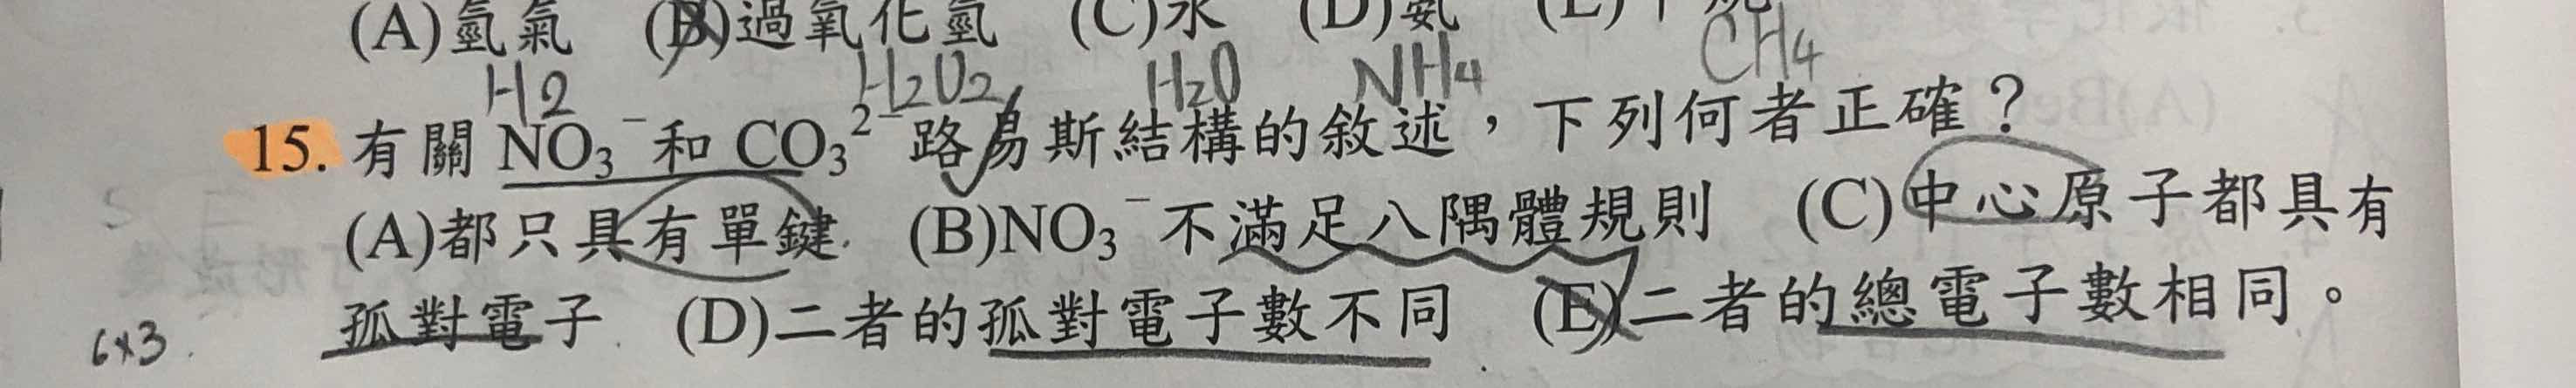 (A)氫氣 (B)過氧化氫 (C)水 (D)氨 (E)
H2 H2O2 H2O NH4 CH4
15. 有關 NO₃⁻和 CO₃²⁻路易斯結構的敘述，下列何者正確？
(A)都只具有單鍵 (B)NO₃⁻不滿足八隅體規則 (C)中心原子都具有
孤對電子 (D)二者的孤對電子數不同 (E)二者的總電子數相同。
6×3